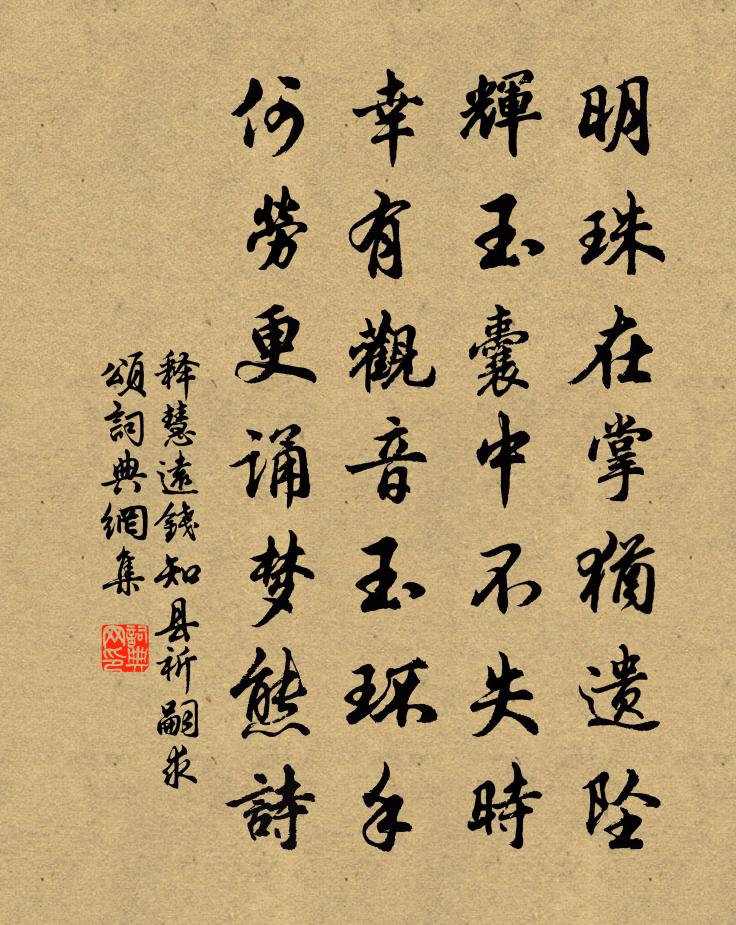 明珠在掌猶遺坠
輝玉囊中不失時
幸有觀音玉环手
何勞更誦梦熊詩
释慧遠錢知县祈嗣求
頌詞典網集
詞典网印